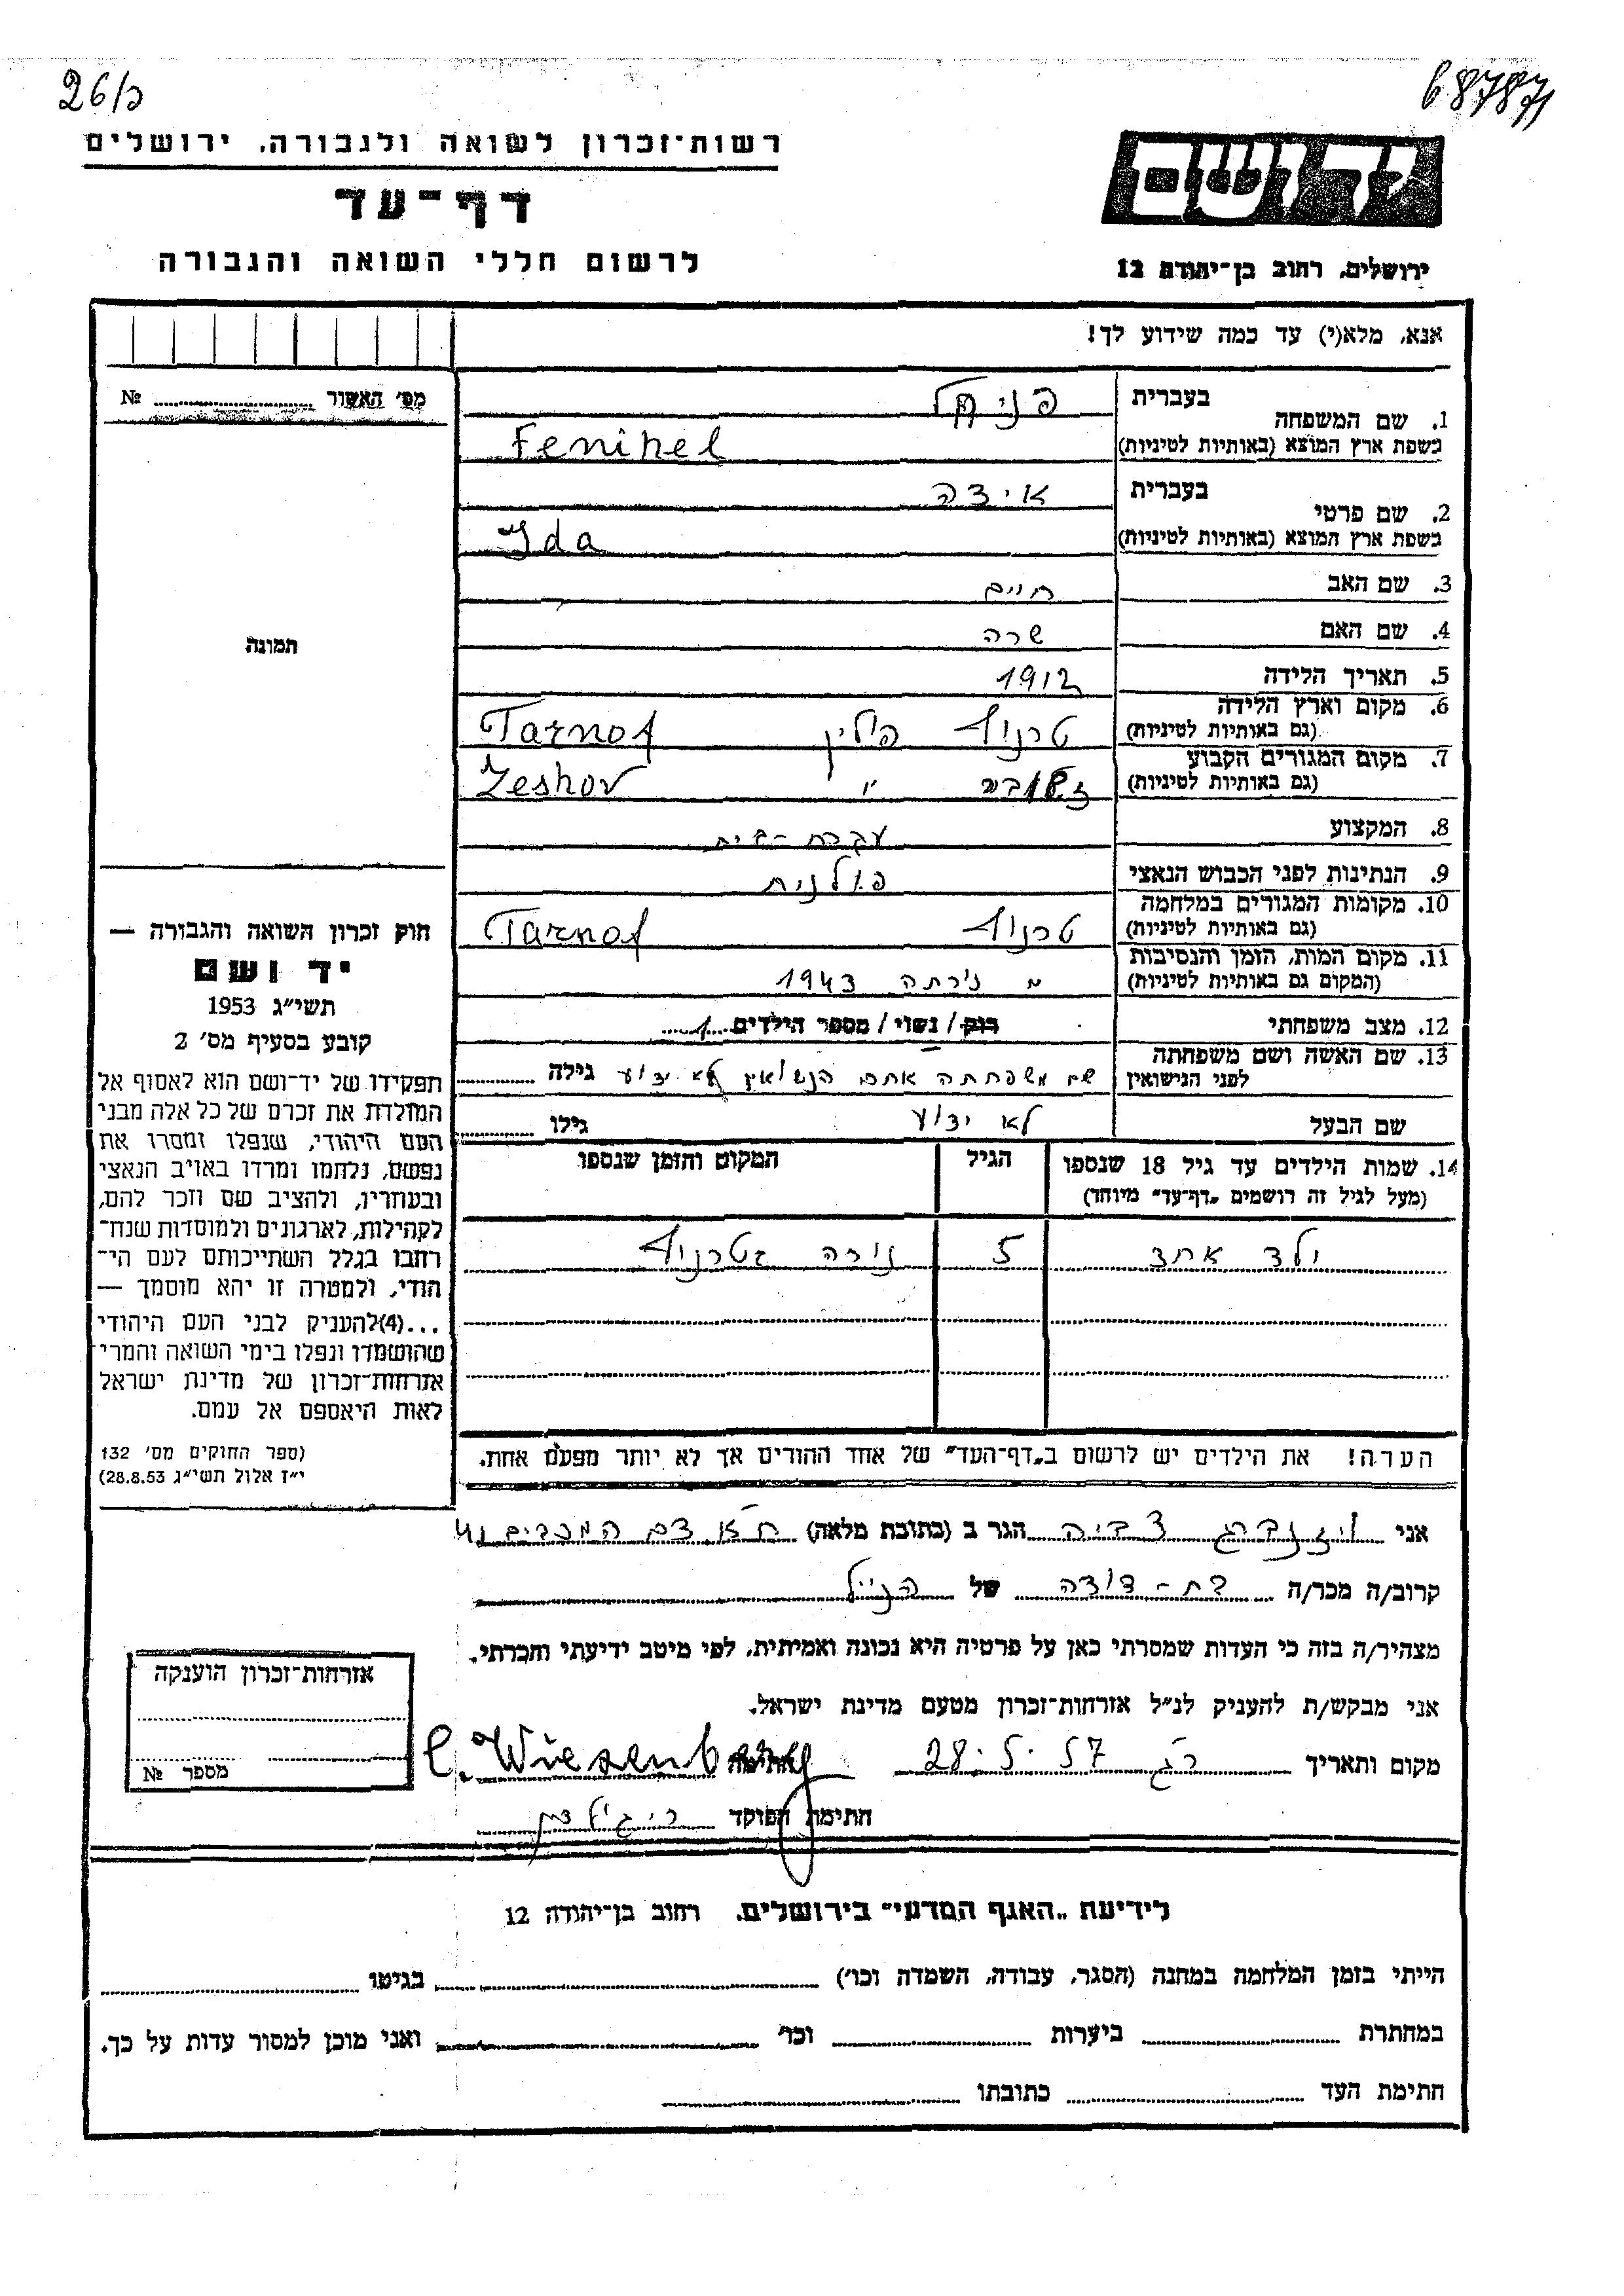 26/כ
68787
רשות־זכרון לשואה ולגבורה, ירושלים
יד ושם
דף־עד
לרשום חללי השואה והגבורה
ירושלים, רחוב בן־יהודה 12
אנא, מלא(י) עד כמה שידוע לך!
מס׳ האשור № 
1. שם המשפחה
בעברית
פניקל
בשפת ארץ המוצא (באותיות לטיניות)
Fenikel
2. שם פרטי
בעברית
אידה
בשפת ארץ המוצא (באותיות לטיניות)
Ida
3. שם האב חיים
4. שם האם שרה
5. תאריך הלידה 1912
6. מקום וארץ הלידה
(גם באותיות לטיניות)
טרנוף פולין Tarnof
7. מקום המגורים הקבוע
(גם באותיות לטיניות)
״ Zeshov
8. המקצוע עקרת-בית
9. הנתינות לפני הכבוש הנאצי פולנית
10. מקומות המגורים במלחמה
(גם באותיות לטיניות)
טרנוף Tarnof
11. מקום המות, הזמן והנסיבות
(המקום גם באותיות לטיניות)
נורתה 1943
12. מצב משפחתי רוק/ נשוי/ מספר הילדים 1
13. שם האשה ושם משפחתה
לפני הנישואין
שם משפחתה אחרי הנשואין לא ידוע גילה
שם הבעל לא ידוע גילו
14. שמות הילדים עד גיל 18 שנספו
(מעל לגיל זה רושמים „דף־עד״ מיוחד)
הגיל
המקום והזמן שנספו
ילד אחד 5 נורה בטרנוף
הערה! את הילדים יש לרשום ב„דף־העד״ של אחד ההורים אך לא יותר מפעם אחת.
תמונה
חוק זכרון השואה והגבורה —
יד ושם
תשי״ג 1953
קובע בסעיף מס׳ 2
תפקידו של יד־ושם הוא לאסוף אל
המולדת את זכרם של כל אלה מבני
העם היהודי, שנפלו ומסרו את
נפשם, נלחמו ומרדו באויב הנאצי
ובעוזריו, ולהציב שם וזכר להם,
לקהילות, לארגונים ולמוסדות שנח־
רחבו בגלל השתייכותם לעם הי־
הודי, ולמטרה זו יהא מוסמך —
...(4)להעניק לבני העם היהודי
שהושמדו ונפלו בימי השואה והמרי
אזרחות־זכרון של מדינת ישראל
לאות היאספם אל עמם.
(ספר החוקים מס׳ 132
י״ז אלול תשי״ג 28.8.53)
אני ויזנברג צביה הגר ב (כתובת מלאה)
קרוב/ה מכר/ה בת-דודה של הנ״ל
מצהיר/ה בזה כי העדות שמסרתי כאן על פרטיה היא נכונה ואמיתית, לפי מיטב ידיעתי והכרתי.
אני מבקש/ת להעניק לנ״ל אזרחות־זכרון מטעם מדינת ישראל.
מקום ותאריך רג 28.5.57 חתימה C. Wiesenberg
חתימת הפוקד
אזרחות־זכרון הוענקה
מספר №
לידיעת „האגף המדעי״ בירושלים, רחוב בן־יהודה 12
הייתי בזמן המלחמה במחנה (הסגר, עבודה, השמדה וכו׳) בגיטו
במחתרת ביערות וכו׳ ואני מוכן למסור עדות על כך.
חתימת העד כתובתו